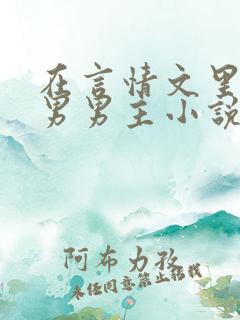 在言情文里
男男主小说
阿布力孜
未经同意禁止转载